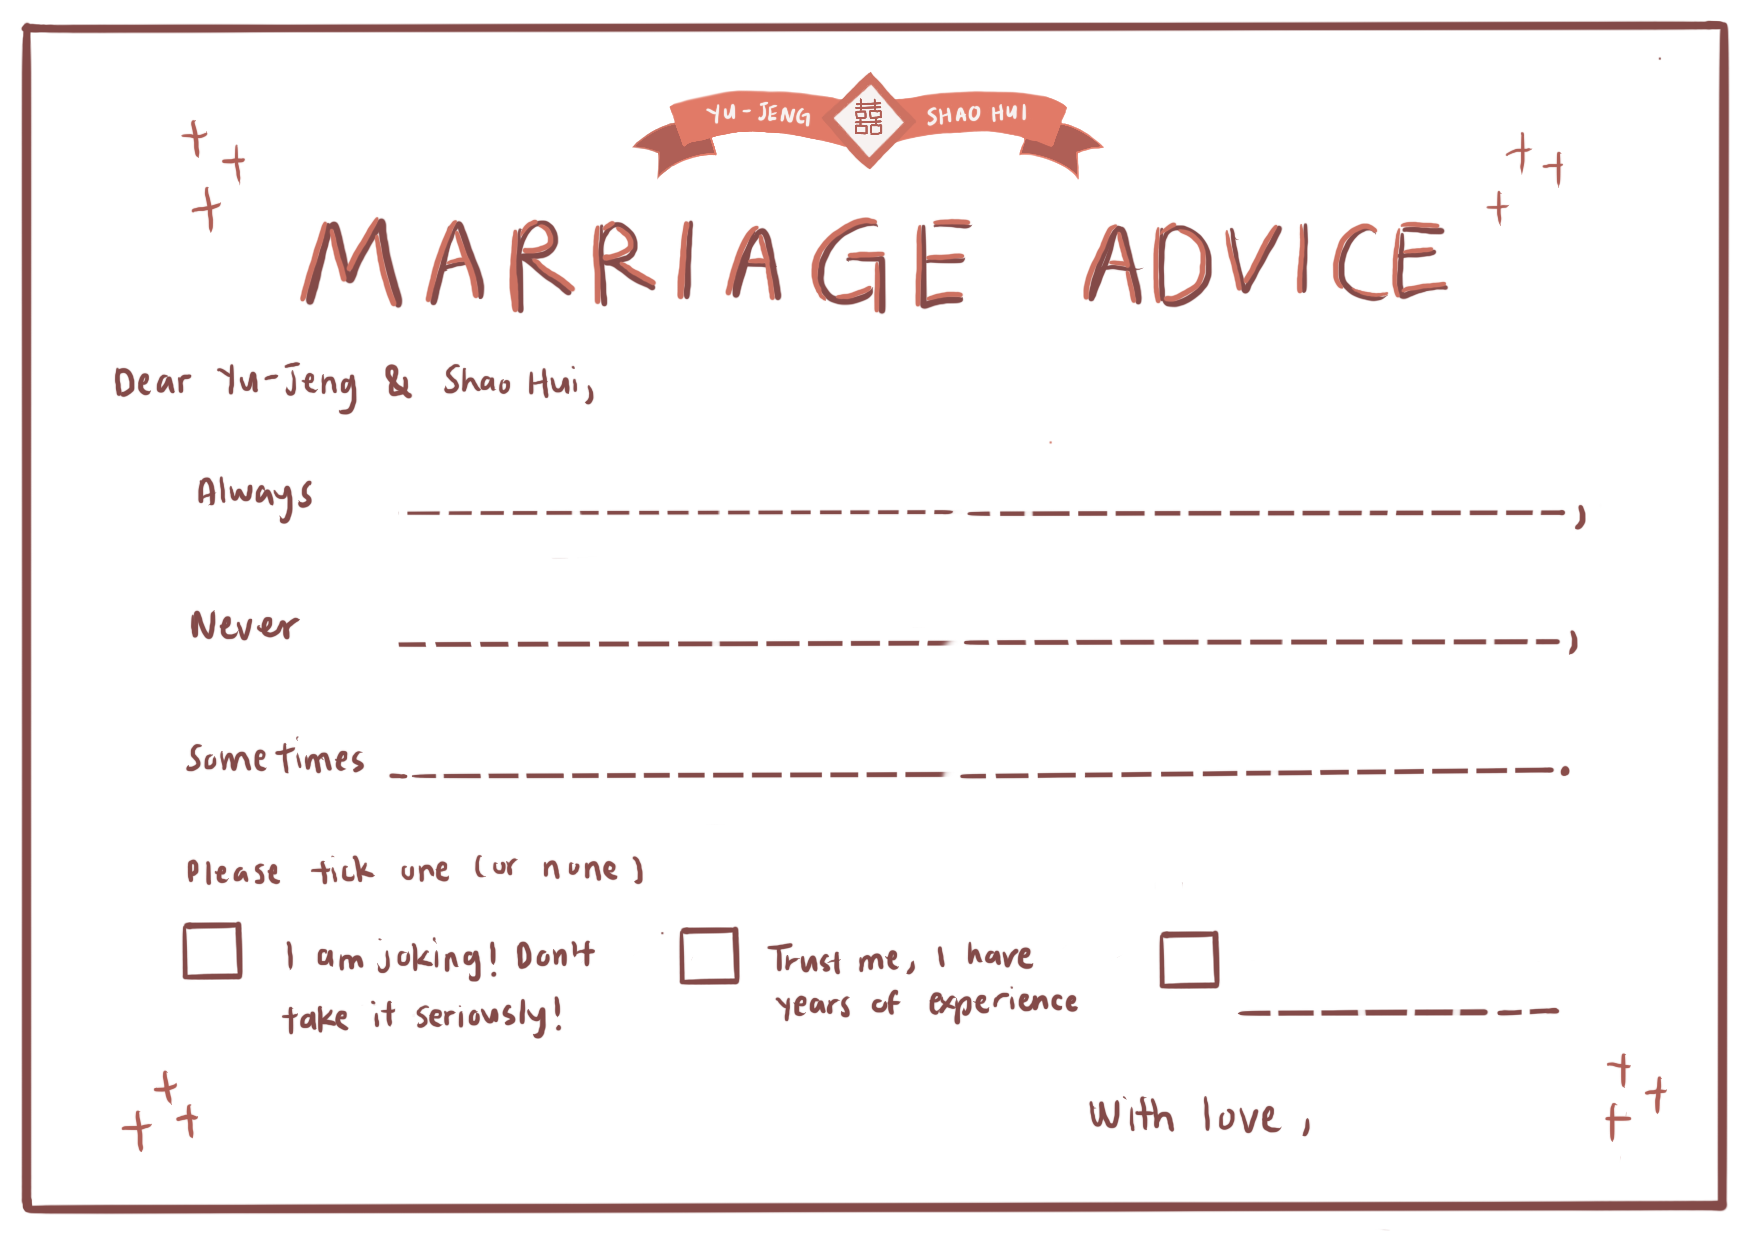 YU-JENG 囍 SHAO HUI
MARRIAGE ADVICE
Dear Yu-Jeng & Shao Hui,
Always ,
Never ,
Sometimes .
Please tick one (or none)
I am joking! Don't
take it seriously!
Trust me, I have
years of experience
With love,